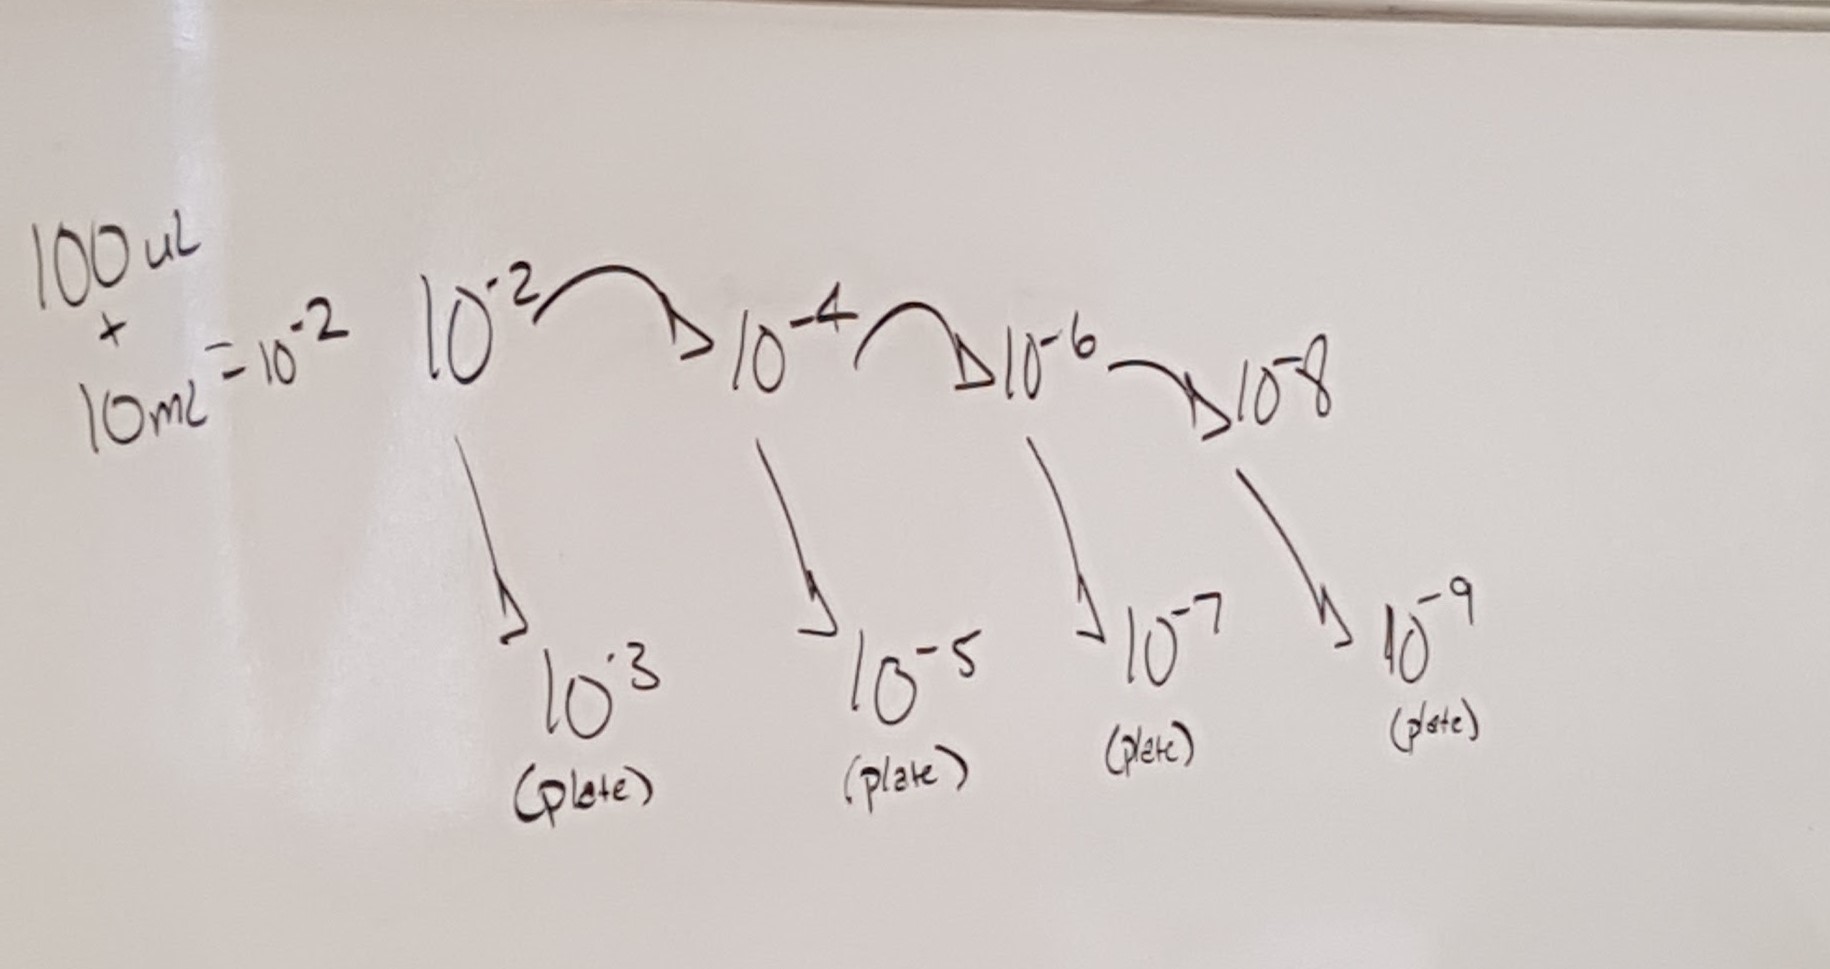 100 uL
+
10 mL = 10^-2
10^-2 10^-4 10^-6 10^-8
10^-3 10^-5 10^-7 10^-9
(plate) (plate) (plate) (plate)